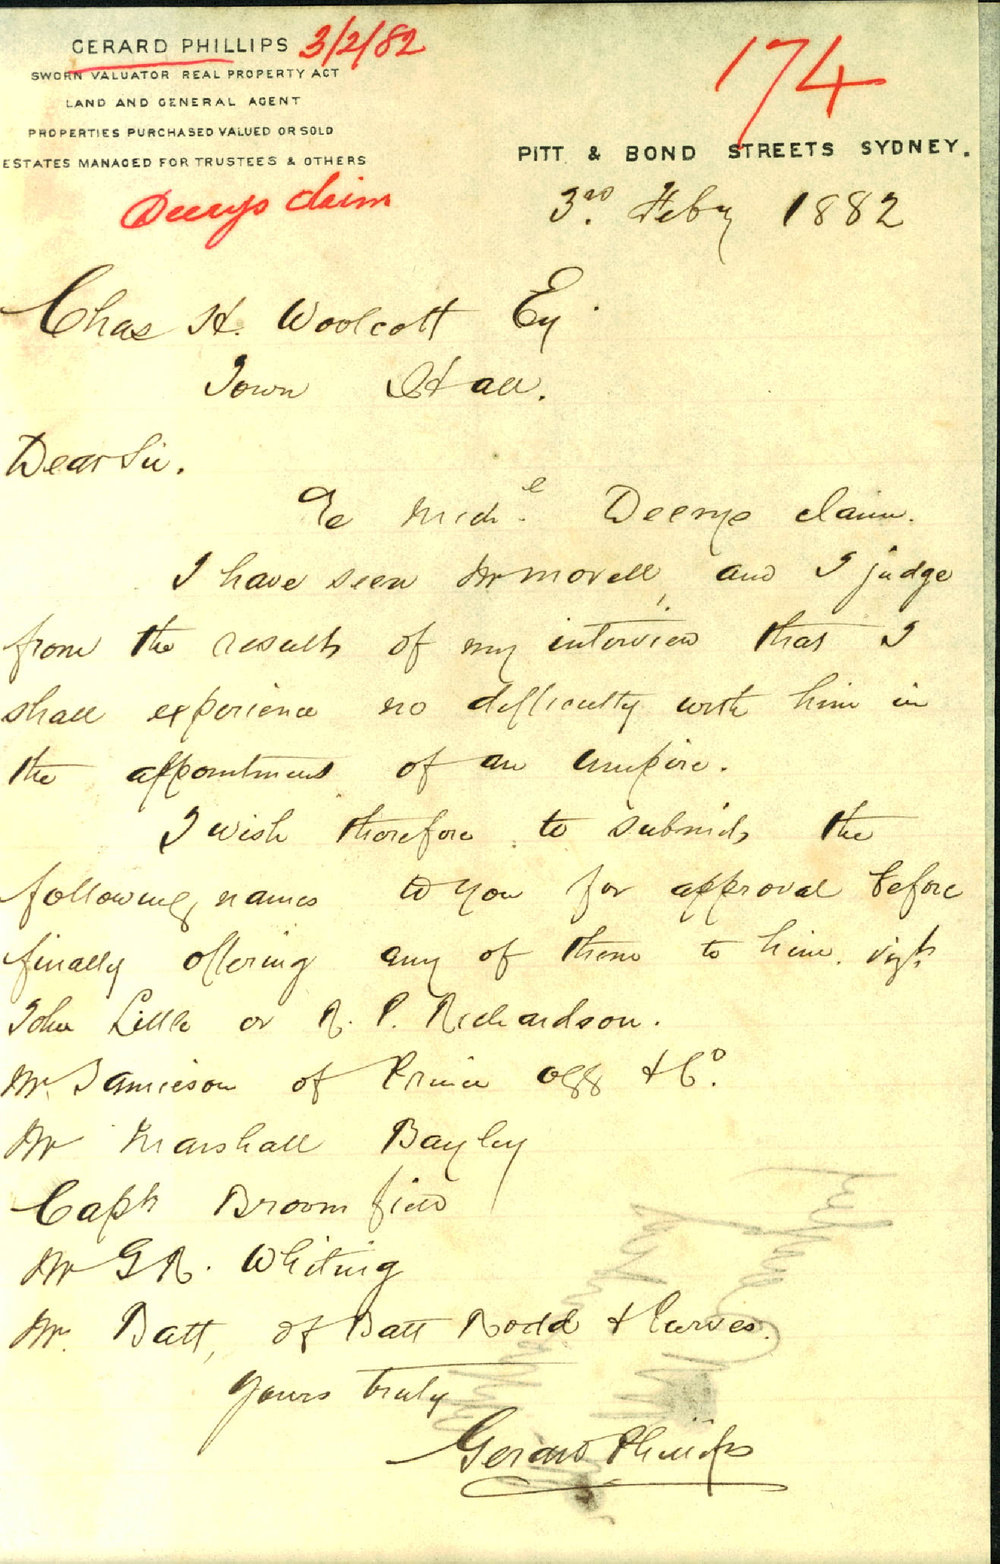 GERARD PHILLIPS 3/2/82
SWORN VALUATOR REAL PROPERTY ACT
LAND AND GENERAL AGENT
PROPERTIES PURCHASED VALUED OR SOLD
ESTATES MANAGED FOR TRUSTEES & OTHERS
Deerys claim
174
PITT & BOND STREETS SYDNEY.
3rd. Feby 1882
Chas H. Woolcott Esq.
Town Hall.
Dear Sir.
Re Mich.l Deerys claim.
I have seen Mr Morell, and I judge
from the results of my interview that I
shall experience no difficulty with him in
the appointment of an umpire.
I wish therefore to submit the
following names to you for approval before
finally offering any of them to him. vizt.
John Little or R. P. Richardson.
Mr. Jamieson of Prince Ogg & Co.
Mr Marshall Bayley
Capt Broomfield
Mr G R. Whiting
Mr. Batt, of Batt Rodd & Purves.
Yours truly
Gerard Phillips